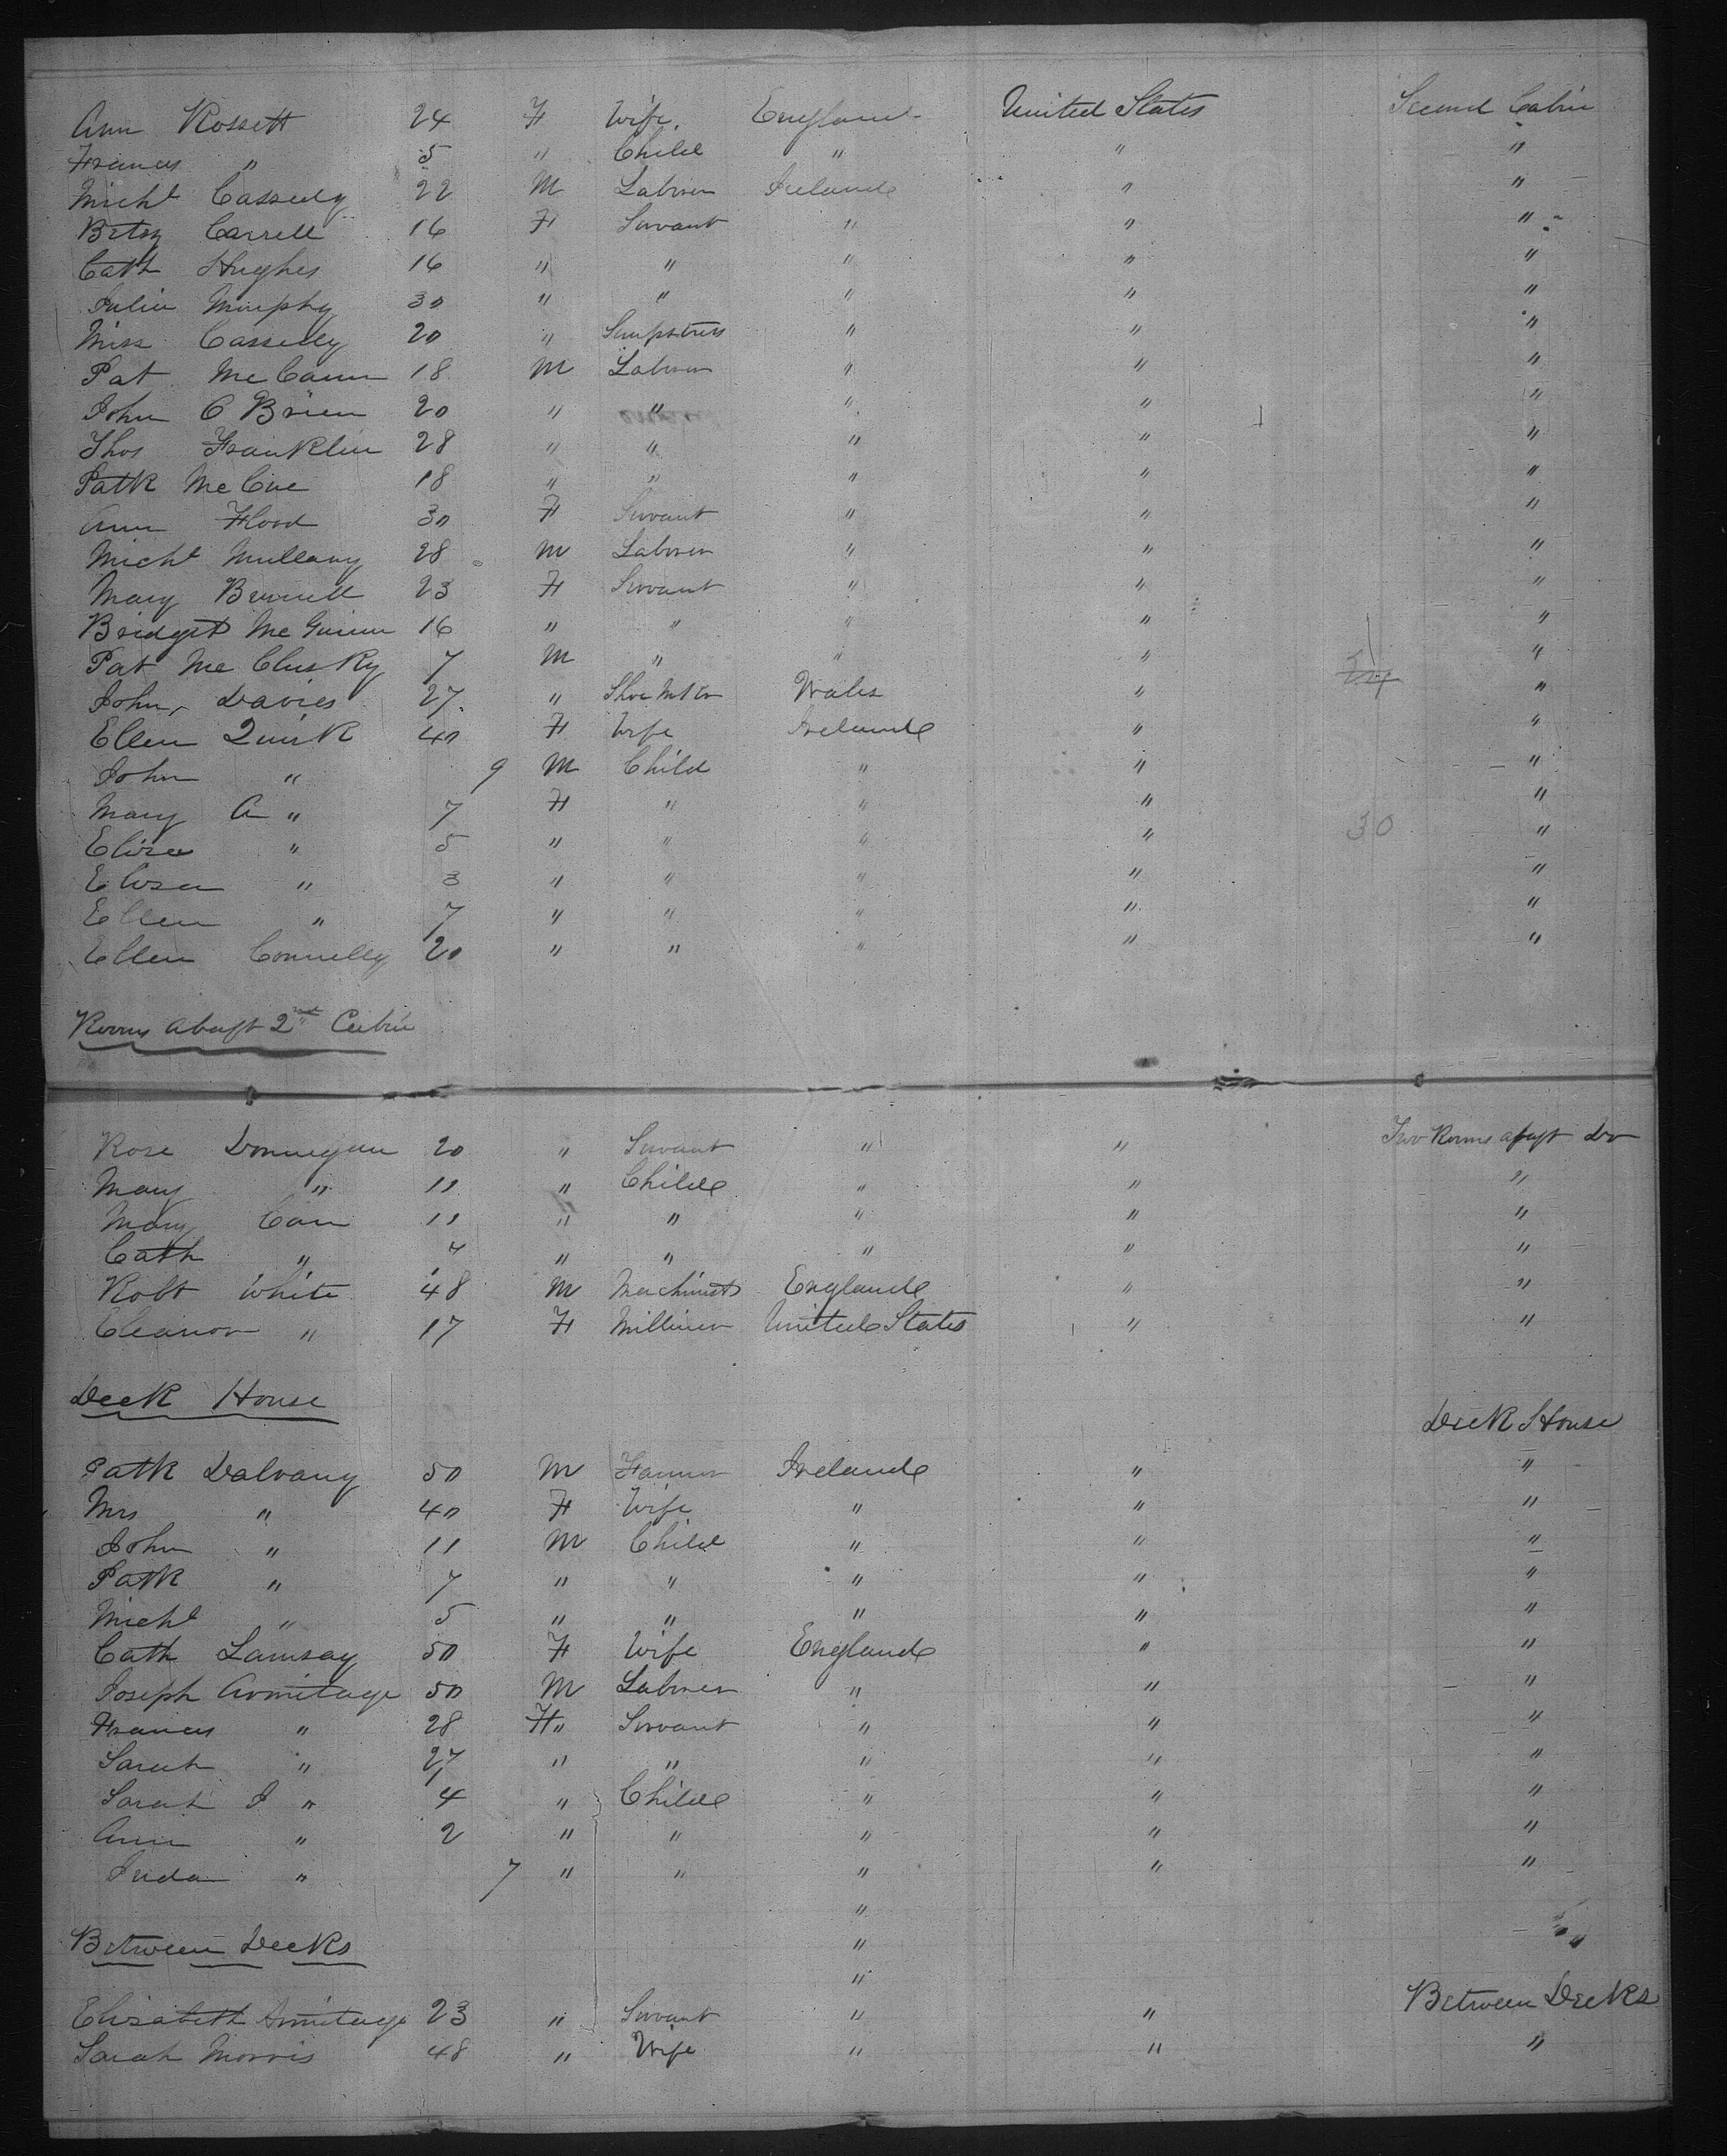 Ann Rossett 24 F Wife. England United States Second Cabin
Frances " 5 " Child " " "
Michl Cassedy 22 M Laborer Ireland " "
Betsy Carrell 16 F Servant " " "
Cath Hughes 16 " " " " "
Julia Murphy 30 " " " " "
Miss Cassedy 20 " Sempstress " " "
Pat McCann 18 M Laborer " " "
John O Brien 20 " " " " "
Thos Franklin 28 " " " " "
Patk McCue 18 " " " " "
Ann Flood 30 F Servant " " "
Michl Mullany 28 M Laborer " " "
Mary Burnell 23 F Servant " " "
Bridget McGuinn 16 " " " " "
Pat McClusky 7 M " " " "
John Davies 27 " Shoe Mker Wales " "
Ellen Quirk 40 F Wife Ireland " "
John " 9 M Child " " "
Mary A " 7 F " " " "
Eliza " 5 " " " " 30 "
Eliza " 3 " " " " "
Ellen " 7 " " " " "
Ellen Connelly 20 " " " " "
Rooms abaft 2nd Cabin
Rose Donnegan 20 " Servant " " Two Rooms abaft Do
Mary " 11 " Child " " "
Mary Carr 11 " " " " "
Cath " 4 " " " " "
Robt White 48 M Machinist England " "
Eleanor " 17 F Milliner United States " "
Deck House
Deck House
Patk Dalvany 50 M Farmer Ireland " "
Mrs " 40 F Wife " " "
John " 11 M Child " " "
Patk " 7 " " " " "
Michl " 5 " " " " "
Cath Lamsay 50 F Wife England " "
Joseph Armitage 50 M Laborer " " "
Frances " 28 F " Servant " " "
Sarah " 27 " " " " "
Sarah J " 4 " Child " " "
Ann " 2 " " " " "
Juda " 7 " " " " "
"
Between Decks "
"
Elizabeth Armitage 23 " Servant " " Between Decks
Sarah Morris 48 " Wife " " "